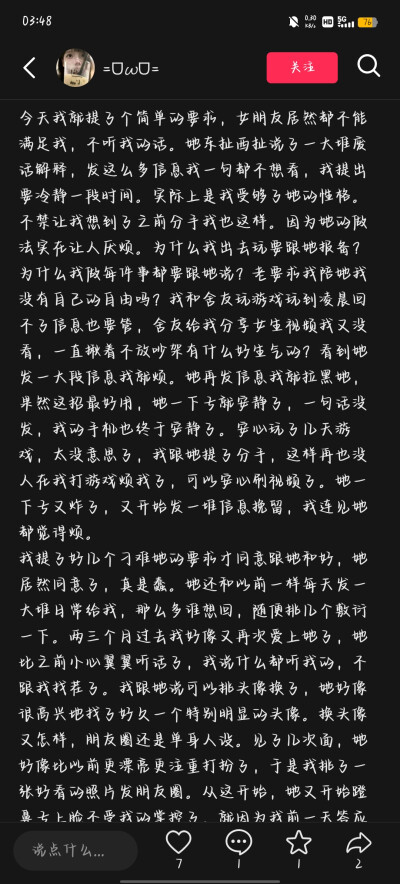 03:48
0.30
KB/s
HD
5G
76
=ʊωʊ=
关注
今天我就提了个简单的要求，女朋友居然都不能
满足我，不听我的话。她东扯西扯说了一大堆废
话解释，发这么多信息我一句都不想看，我提出
要冷静一段时间。实际上是我受够了她的性格。
不禁让我想到了之前分手我也这样。因为她的做
法实在让人厌烦。为什么我出去玩要跟她报备？
为什么我做每件事都要跟她说？老要求我陪她我
没有自己的自由吗？我和舍友玩游戏玩到凌晨回
不了信息也要管，舍友给我分享女生视频我又没
看，一直揪着不放吵架有什么好生气的？看到她
发一大段信息我就烦。她再发信息我就拉黑她，
果然这招最好用，她一下子就安静了，一句话没
发，我的手机也终于安静了。安心玩了几天游
戏，太没意思了，我跟她提了分手，这样再也没
人在我打游戏烦我了，可以安心刷视频了。她一
下子又炸了，又开始发一堆信息挽留，我连见她
都觉得烦。
我提了好几个刁难她的要求才同意跟她和好，她
居然同意了，真是蠢。她还和以前一样每天发一
大堆日常给我，那么多谁想回，随便挑几个敷衍
一下。两三个月过去我好像又再次爱上她了，她
比之前小心翼翼听话了，我说什么都听我的，不
跟我找茬了。我跟她说可以挑头像换了，她好像
很高兴地找了好久一个特别明显的头像。换头像
又怎样，朋友圈还是单身人设。见了几次面，她
好像比以前更漂亮更注重打扮了，于是我挑了一
张好看的照片发朋友圈。从这开始，她又开始蹬
鼻子上脸不受我的掌控了，就因为我前一天答应
说点什么...
7
1
1
2